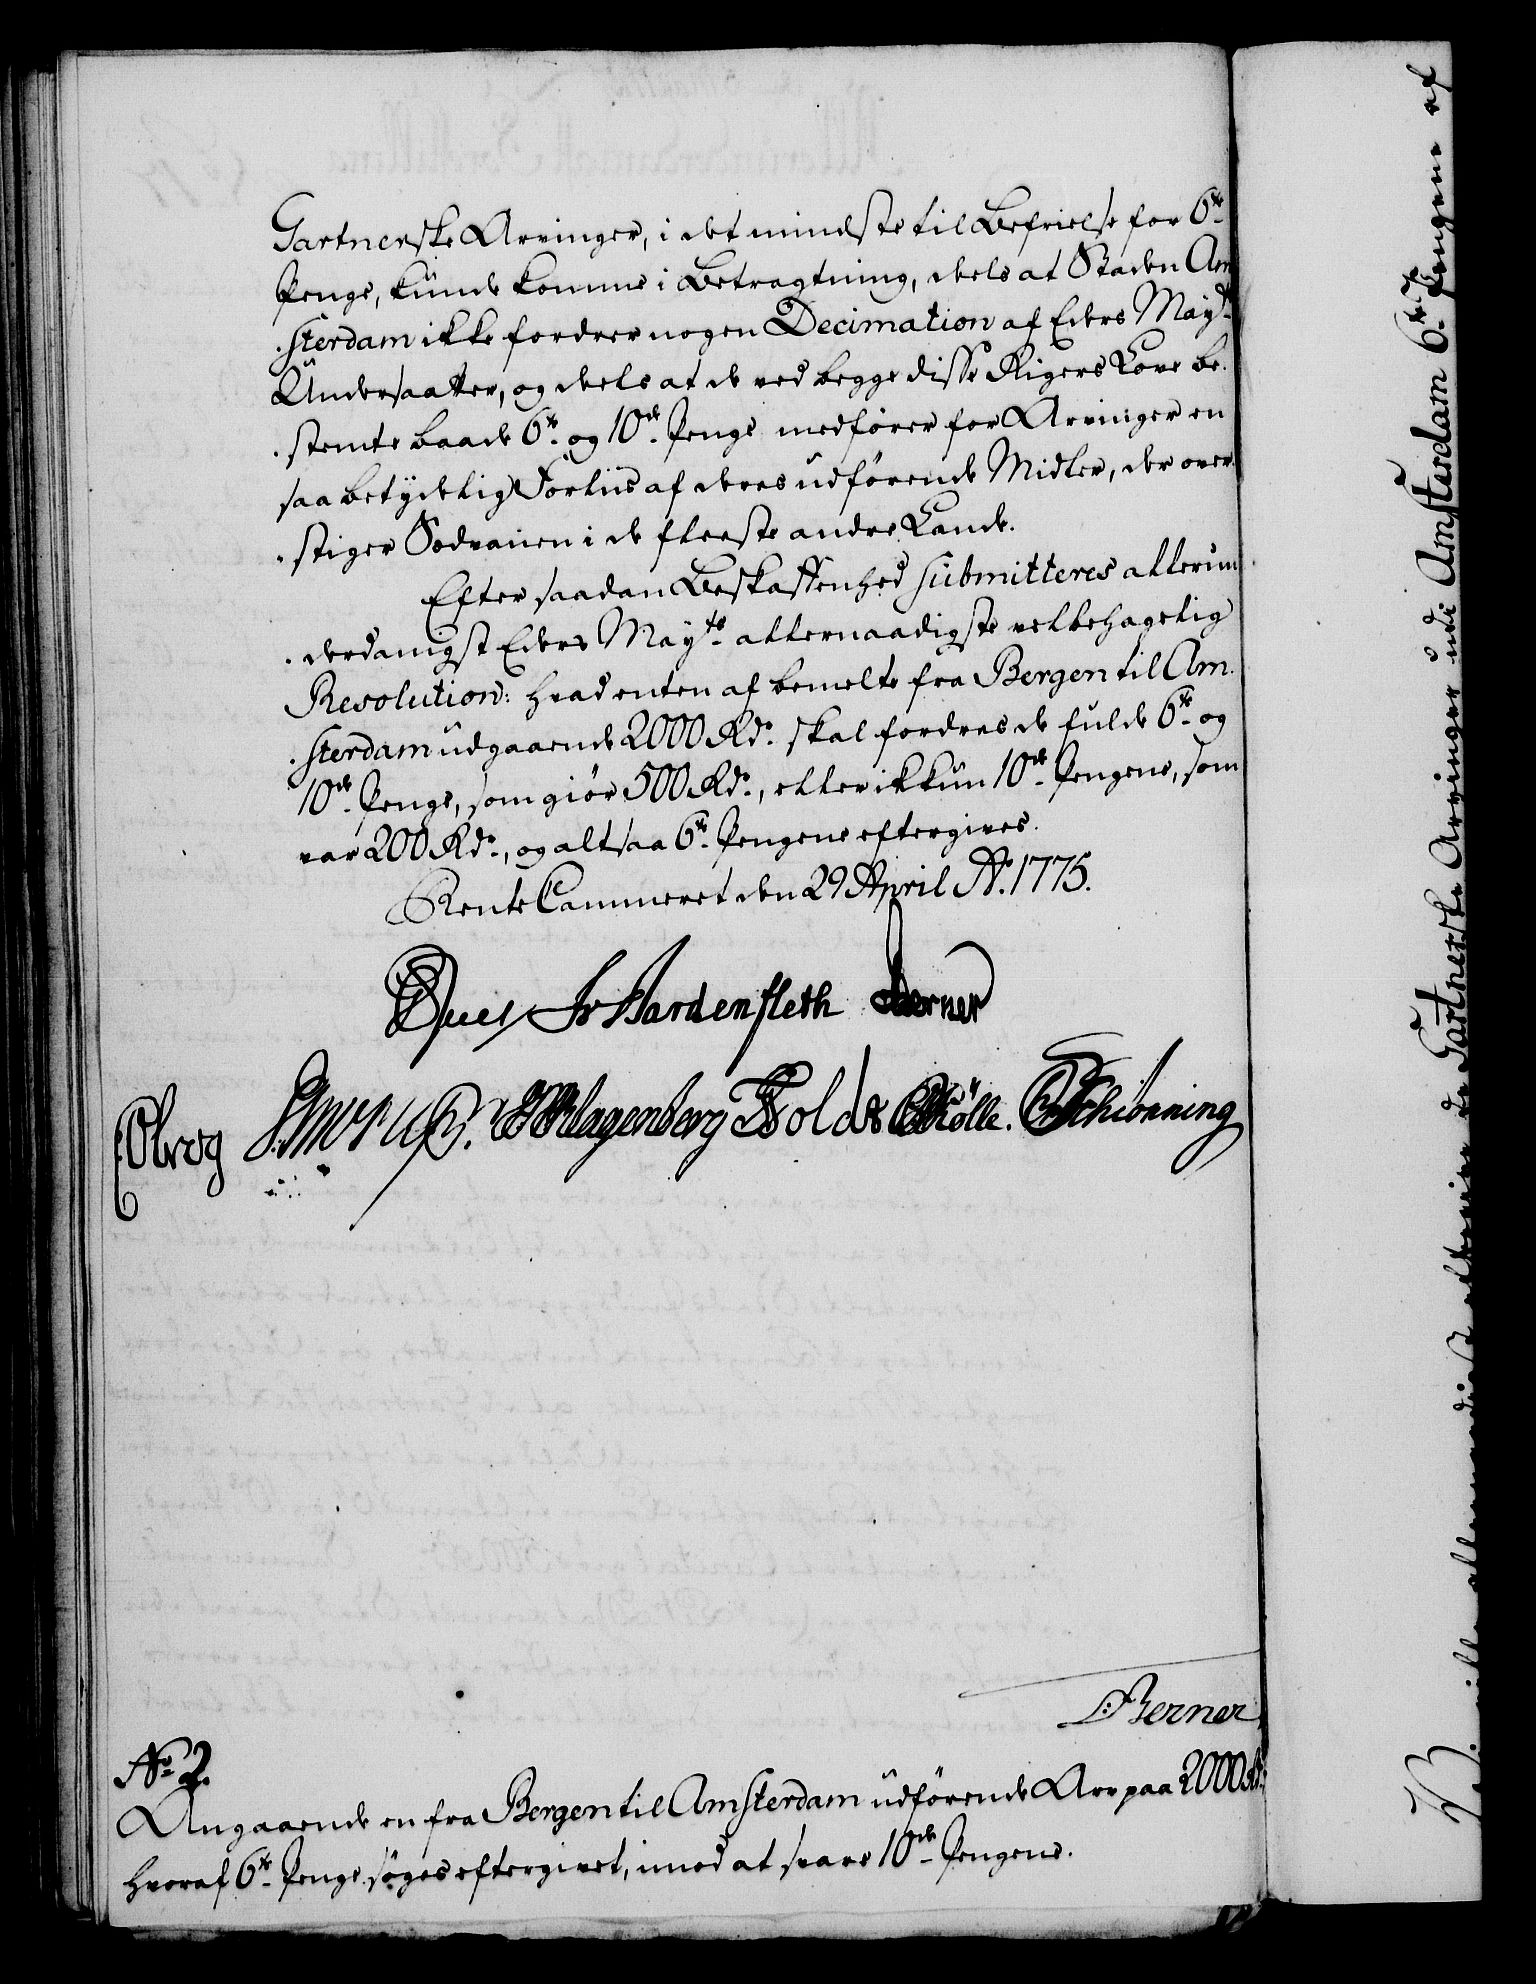 Gartnerske Arvinger, i det mindste til Befrielse for 6te
Penge, kunde komme i Betragtning, deels at Staden Am
sterdam ikke fordrer nogen Decimation af Eders Mayts
Undersaatter, og deels at de ved begge disse Rigers Love be-
stemte baade 6te og 10de Penge medfører for Arvinger en
saa betydelig Forliis af deres udførende Midler, der over-
stiger Sædvanen i de fleeste andre Lande.
Efter saadan Beskaffenhed submitteres allerun
derdanigst Eders Mayts allernaadigste velbehagelig
Resolution: hvad enten af bemelte fra Bergen til Am-
sterdam udgaaende 2000 Rdr. skal fordres de fulde 6te og
10de Penge, som giør 500 Rdr., eller ikkun 10de Pengene, som
var 200 Rdr., og altsaa 6te Pengene eftergives.
Rente Cammeret den 29 April Ao. 1775.
Juel Hardenfleth Berner
Olrog Klagenberg Holds Kølle. Schiönning
Berner
No. 2.
Angaaende en fra Bergen til Amsterdam udførende Arv paa 2000 Rdr.
hvoraf 6te Penge søges eftergivet, imod at svare 10de Pengene.
Gartnerske Arvinger udi Amsterdam 6te Pengene af